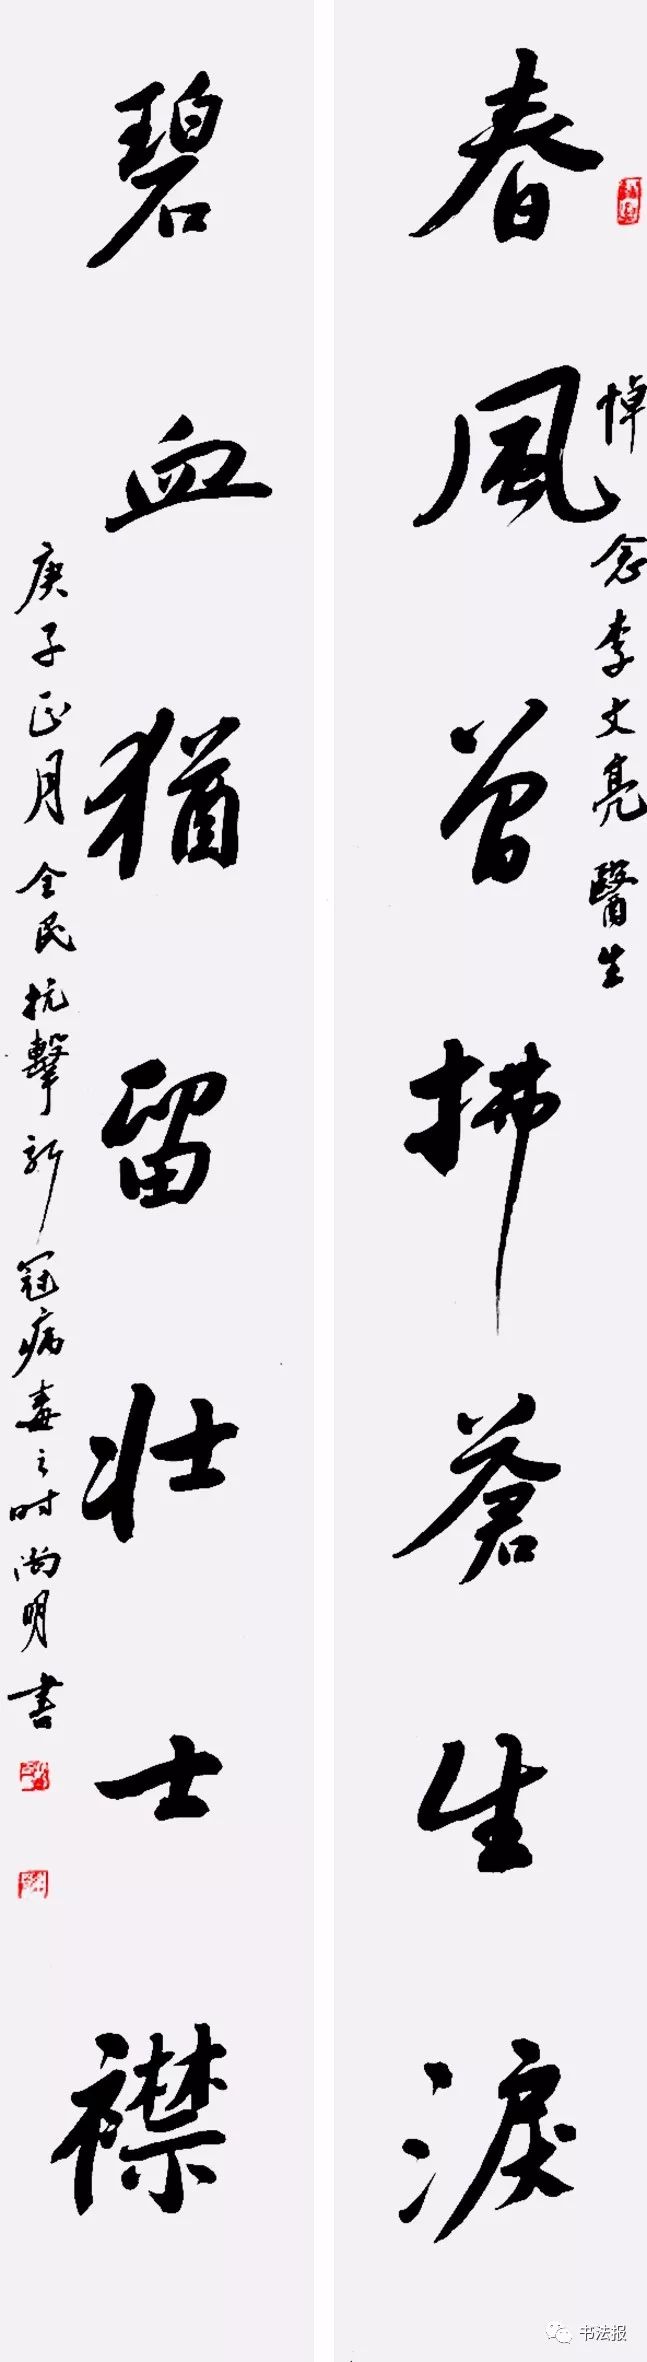 悼念李文亮醫生
春風曾拂蒼生淚
碧血猶留壯士襟
庚子正月全民抗擊新冠病毒之時尚明書
书法报